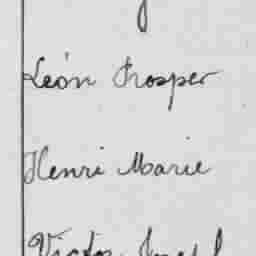 Léon Prosper
Henri Marie
Victor Joseph